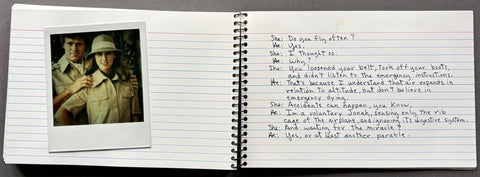 She: Do you fly often?
He: Yes.
She: I thought so.
He: Why?
She: You loosened your belt, took off your boots,
and didn't listen to the emergency instructions.
He: That's because I understand that air expands in
relation to altitude, but don't believe in
emergency dying.
She: Accidents can happen, you know.
He: I'm a voluntary Jonah, sensing only the rib
cage of the airplane, and ignoring its digestive system.
She: And waiting for the miracle?
He: Yes, or at least another parable.